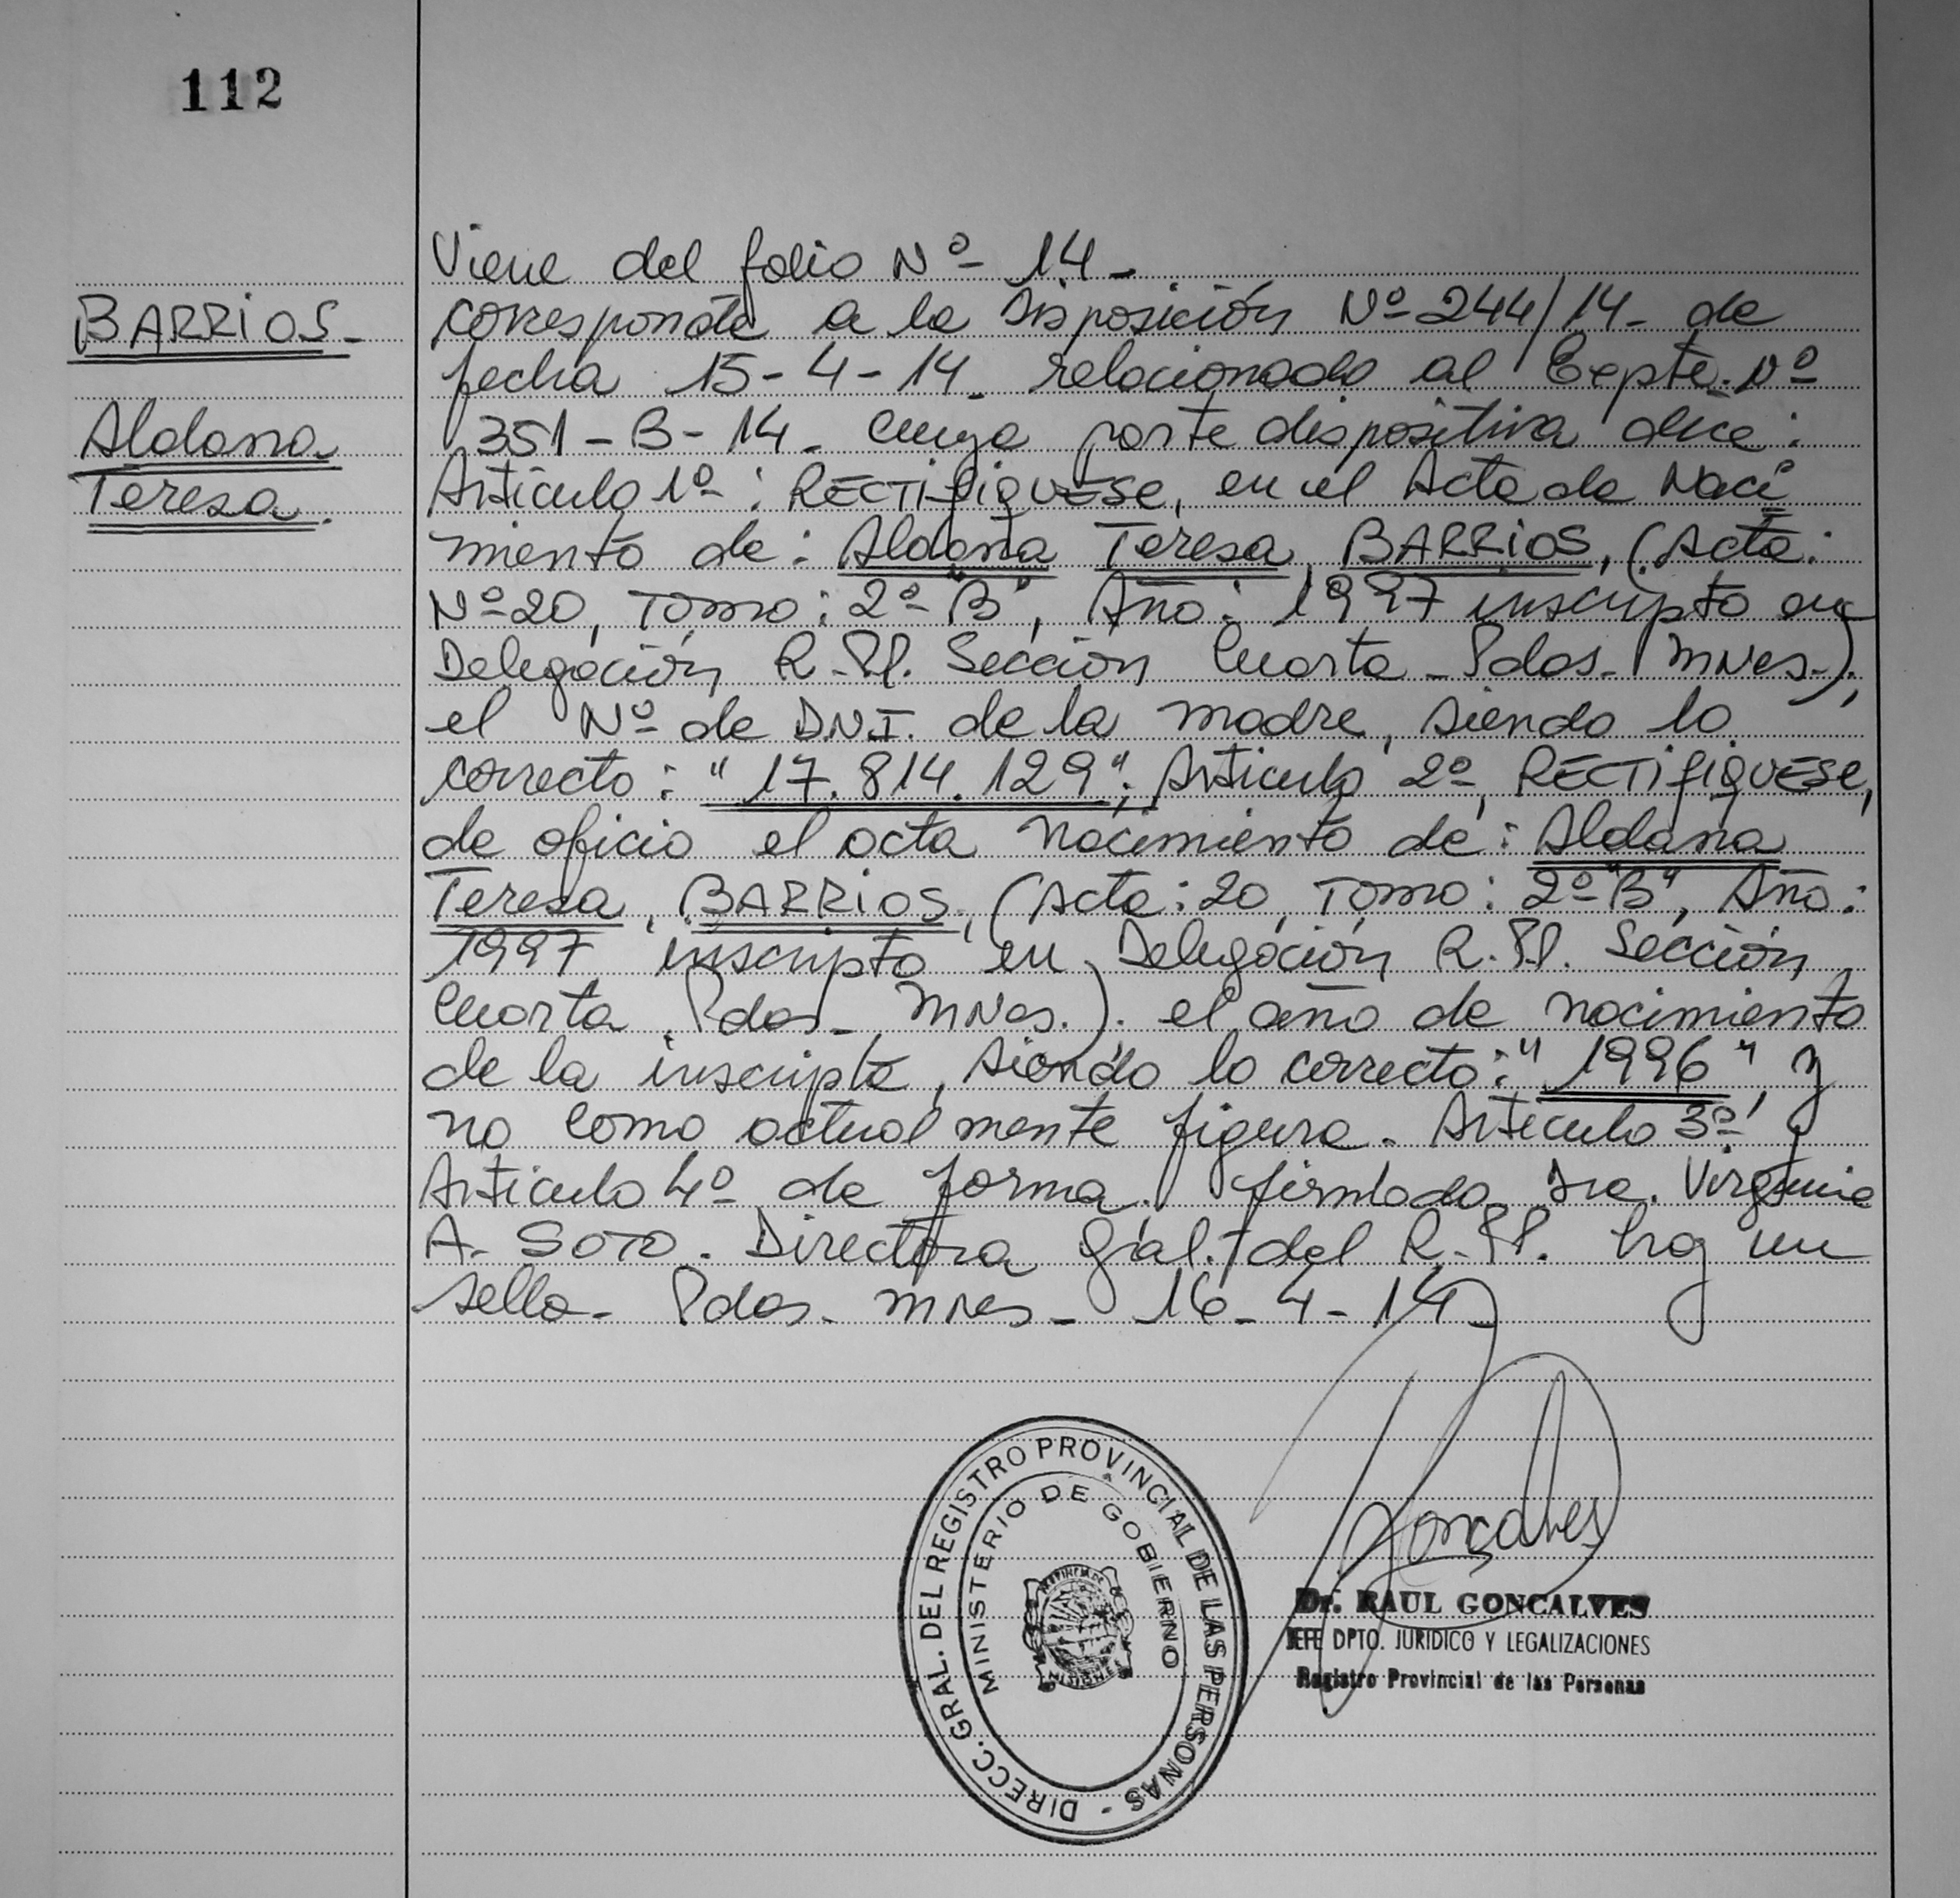 112
BARRIOS-
Aldana
Teresa.
Viene del folio Nº 14-
corresponde a la Disposición Nº 244/14- de
fecha 15-4-14 relacionado al Expte. Nº
351-B-14. cuya parte dispositiva dice:
Artículo 1º: RECTIFIQUESE, en el Acta de Naci
miento de: Aldana Teresa BARRIOS, (Acta:
Nº 20, Tomo: 2º "B", Año: 1997 inscripto en
Delegación R.PP. Sección Cuarta - Pdas- Mnes-),
el Nº de D.N.I. de la madre, siendo lo
correcto: "17.814.129"; Artículo 2º, RECTIFIQUESE,
de oficio el acta nacimiento de: Aldana
Teresa, BARRIOS, (Acta: 20, Tomo: 2º "B", Año:
1997 inscripto en Delegación R.PP. Sección
Cuarta Pdas- Mnes.). el año de nacimiento
de la inscripta, siendo lo correcto: "1996", y
no como actualmente figura. Artículo 3º y
Artículo 4º de forma. firmado Dra. Virginia
A. SOTO. Directora Gral. del R.PP. hay un
sello- Pdas. Mnes- 16-4-14
DIRECC. GRAL. DEL REGISTRO PROVINCIAL DE LAS PERSONAS -
MINISTERIO DE GOBIERNO
Goncalves
Dr. RAUL GONCALVES
JEFE DPTO. JURIDICO Y LEGALIZACIONES
Registro Provincial de las Personas